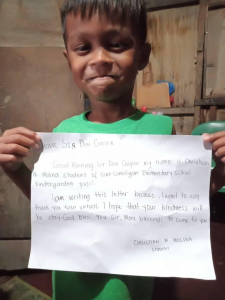 Dear Sir Don Cooper
Good Morning Sir Don Cooper my name is Christian
A. Molina student of San Elementary School
kindergarten pupil.
I am writing this letter because I want to say
thank you our school. I hope that your kindness will
to stay. God bless you sir, More blessings to come for you
Christian A. Molina
Student